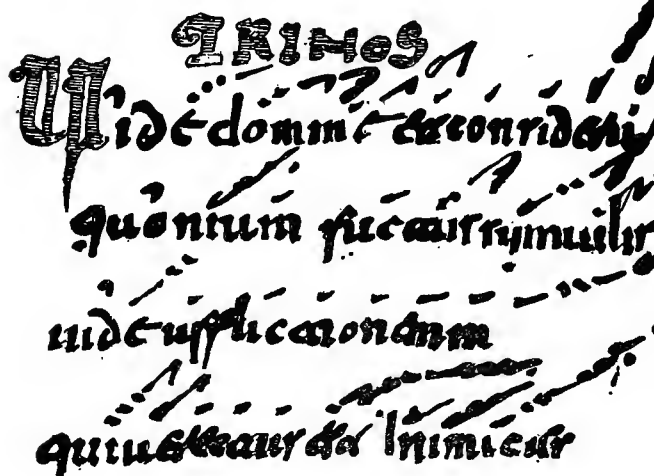 TRINOS
Uide domine et considera
quoniam facta sum uilis
uide afflictionem
quia erectus est Inimicus